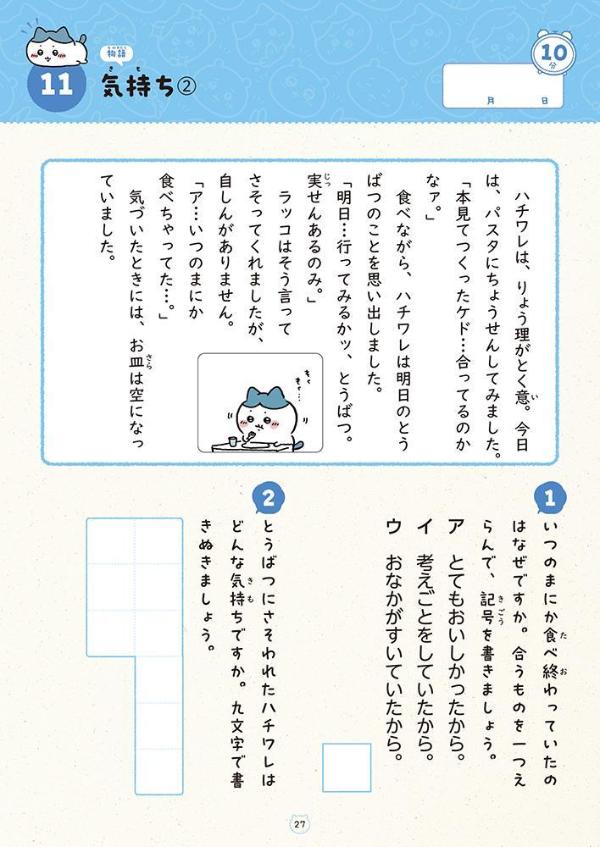 11
物語
ものがたり
気持ち②
きも
月 日
10分
ハチワレは、りょう理がとく意。今日
い
は、パスタにちょうせんしてみました。
「本見てつくったケド…合ってるのか
なァ。」
食べながら、ハチワレは明日のとう
ばつのことを思い出しました。
「明日…行ってみるかッ、とうばつ。
実せんあるのみ。」
じっ
ラッコはそう言って
さそってくれましたが、
自しんがありません。
「ア…いつのまにか
食べちゃってた…。」
気づいたときには、お皿は空になっ
さら
ていました。
もぐ
もぐ…
1
いつのまにか食べ終わっていたの
た お
はなぜですか。合うものを一つえ
らんで、記号を書きましょう。
きごう
ア とてもおいしかったから。
イ 考えごとをしていたから。
ウ おなかがすいていたから。
2
とうばつにさそわれたハチワレは
どんな気持ちですか。九文字で書
きも
きぬきましょう。
27